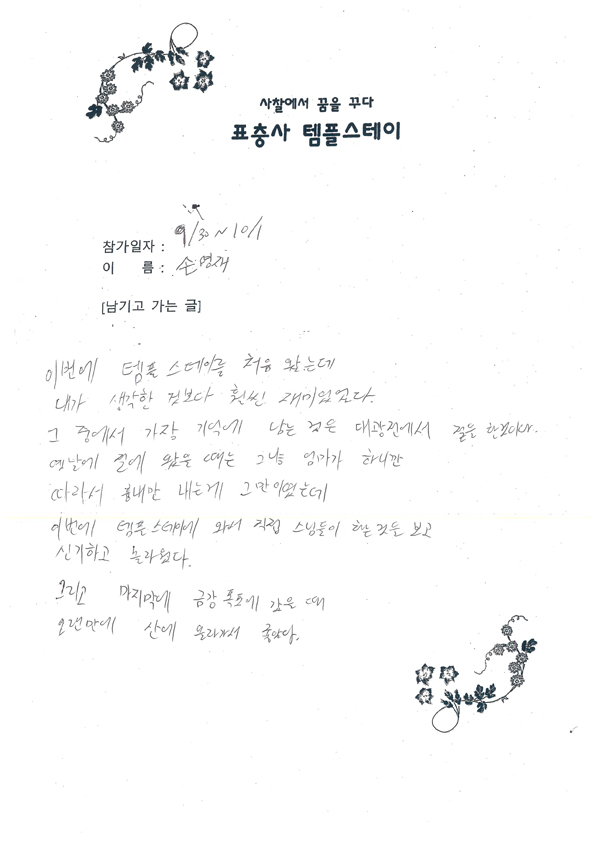 사찰에서 꿈을 꾸다
표충사 템플스테이
참가일자 : 9/30 ~ 10/1
이 름 : 손명재
[남기고 가는 글]
이번에 템플스테이를 처음 왔는데
내가 생각한 것보다 훨씬 재미있었다.
그 중에서 가장 기억에 남는 것은 대광전에서 절을 한것이다.
옛날에 절에 왔을 때는 그냥 엄마가 하니깐
따라서 흉내만 내는게 그만이였는데
이번에 템플스테이에 와서 직접 스님들이 하는것을 보고
신기하고 놀라웠다.
그리고 마지막에 금강폭포에 갔을 때
오랜만에 산에 올라가서 좋았다.